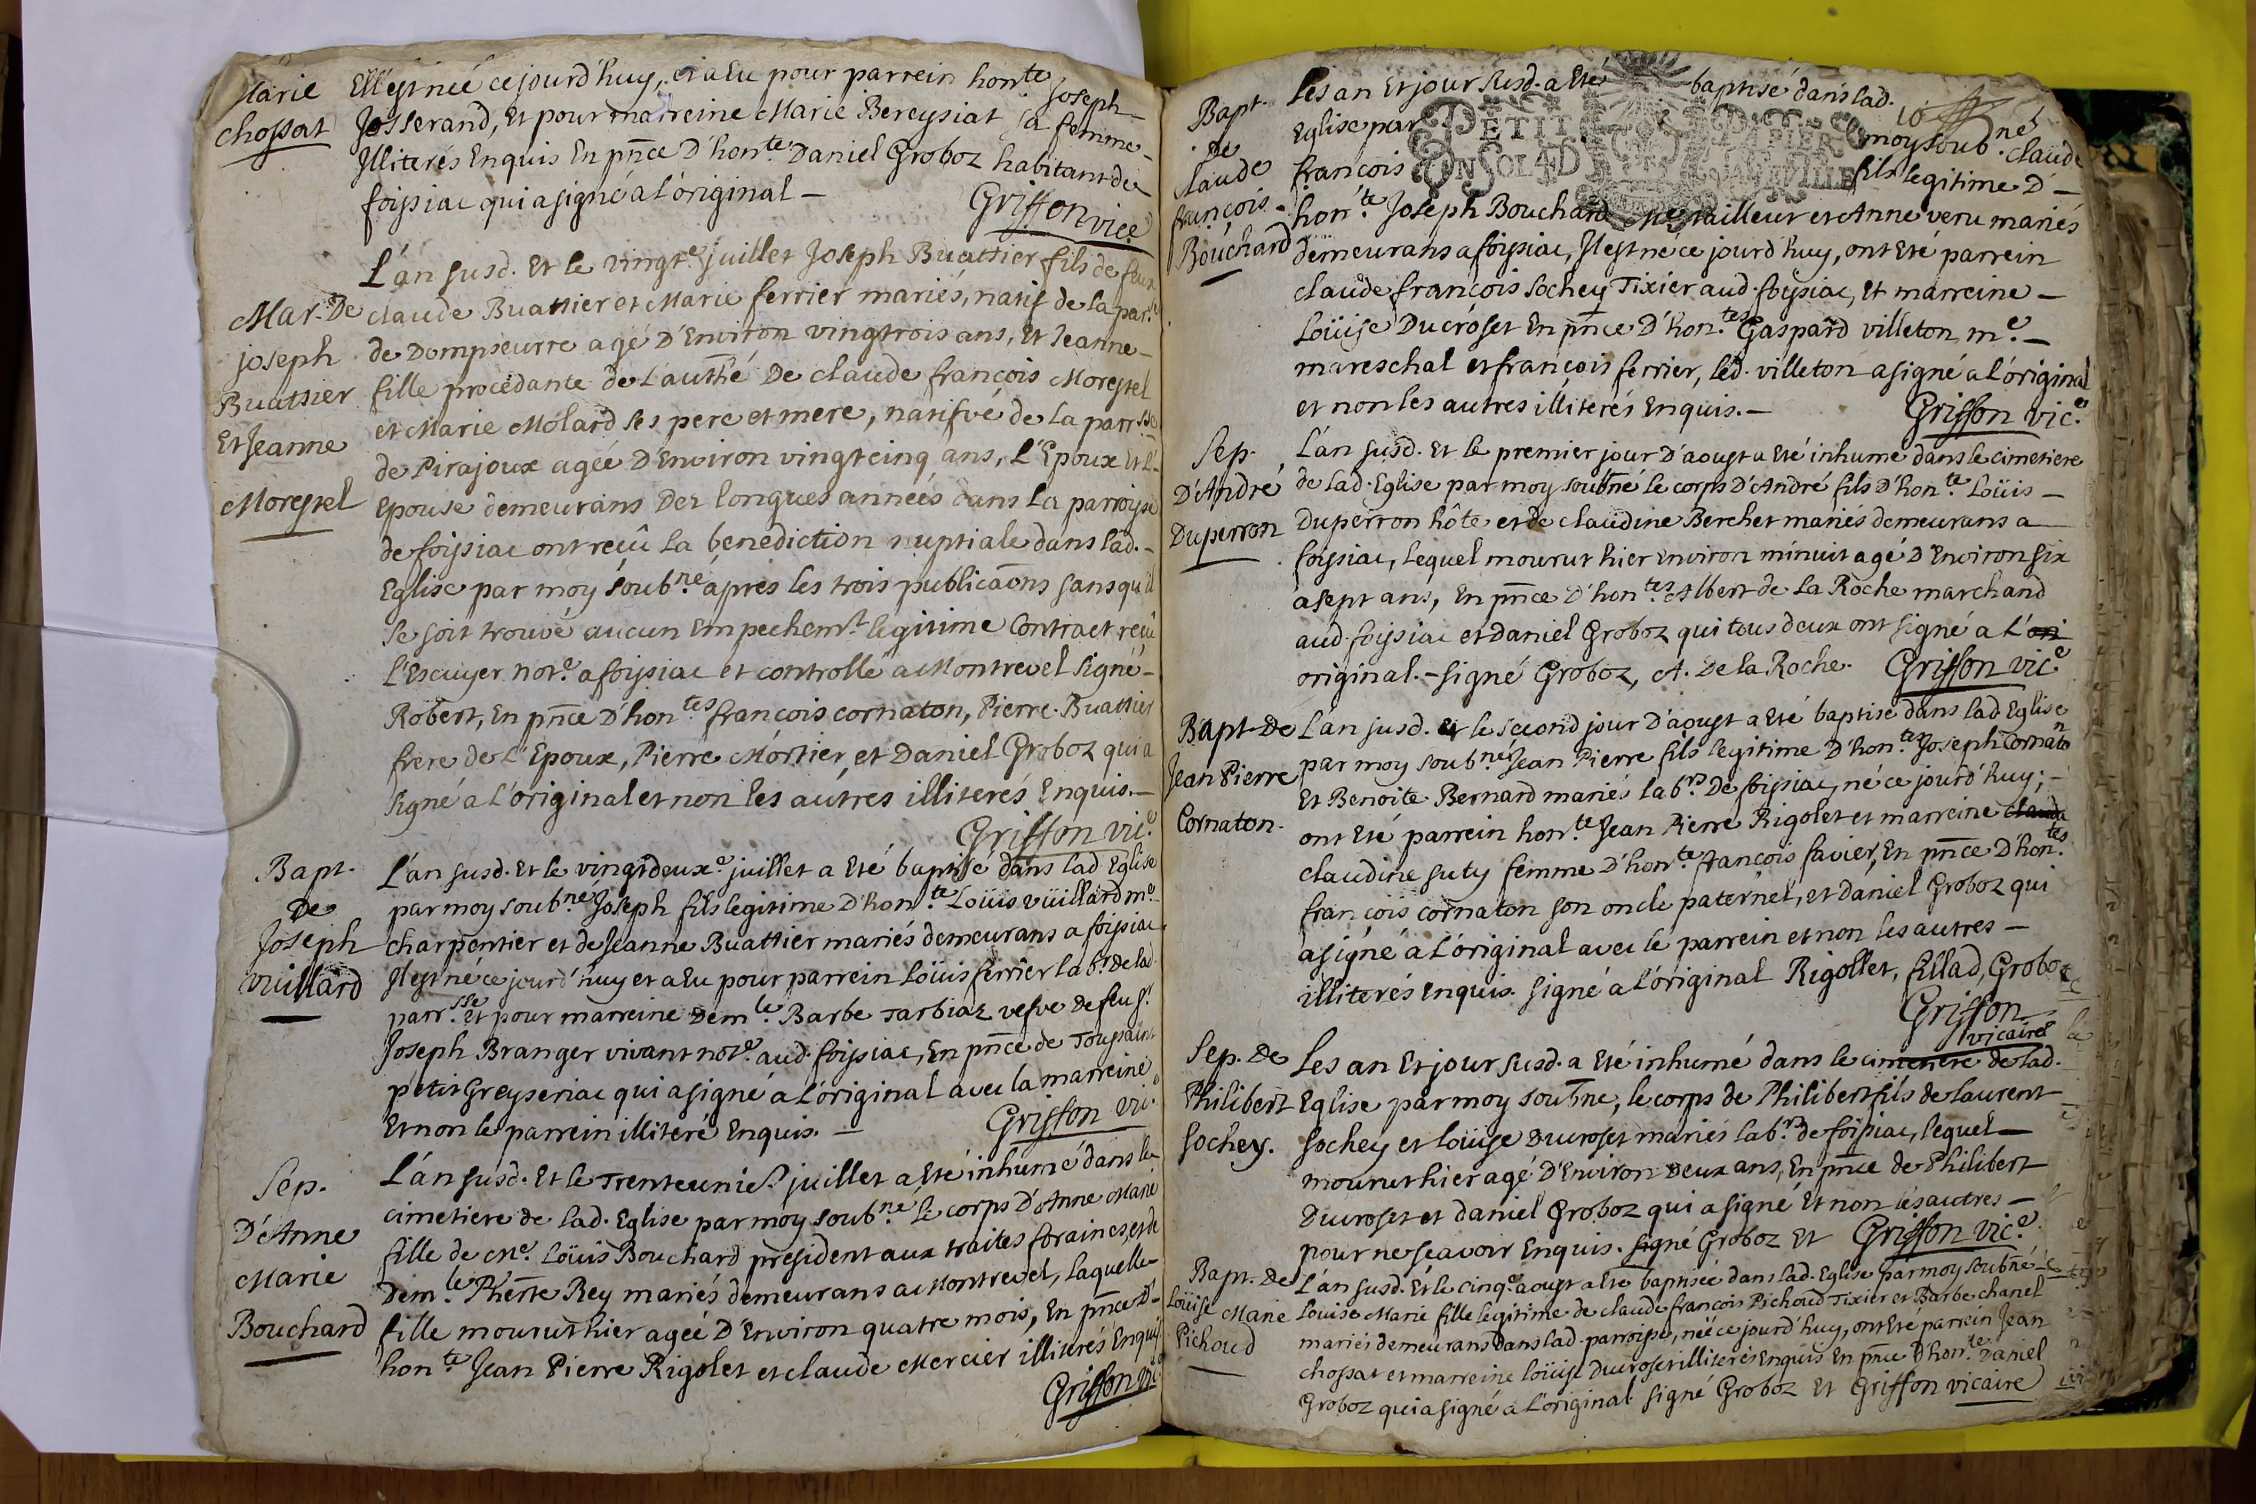 Marie
chossat
Ell'est née ce jourd'huy, et a Eu pour parrein hon.te Joseph
Josserand, Et pour marreine Marie Bereysiat sa femme
Jlliterés Enquis En pñce D'hon.te Daniel Groboz habitant de
foissiac qui a signé a l'original –
Griffon vic.e
Mar. De
joseph
Buattier
Et Jeanne
Morestel
L'an susd. Et le vingt.e juillet Joseph Buattier fils de feux
claude Buattier et Marie ferrier mariés, natif de la par.se
de Dompseurre agé D'Environ vingtrois ans, Et Jeanne –
fille procédante de L'authé De claude françois Morestel
et Marie Mólard ses pere et mere, natifvé de la parr.sse
de Pirajoux ageé D'Environ vingt cinq ans, L'Epoux Et L'
Epouse demeurans Dez longues anneés dans La parroisse
de foissiac ont reçû La benediction nuptiale dans lad. –
Eglise par moy soub.né áprés les trois publicaõns sans qu'il
se soit trouvé aucun Empechem.t legitime Contract reçû
L'Escuyer not.e a foissiac et controllé a Montrevel signé –
Robert, En pñce D'hon.tes françois cornaton, Pierre Buattier
frere de L'Epoux, Pierre Mórtier, et Daniel Groboz qui a
signé a L'original et non les autres illiterés Enquis. –
Griffon vic.e
Bapt.
De
Joseph
vuillard
L'an susd. Et le vingtdeux.e juillet a Eté baptisé dans lad Eglise
par moy soub.né Joseph fils legitime D'hon.te Loüis vüillard m.e
charpentier et de Jeanne Buattier mariés demeurans a foissiac
Jl est né ce jourd'huy et a Eu pour parrein Loüis ferrier lab.r De lad.
parr.sse et pour marreine Dem.le Barbe Tarbiaz vesve de feu S.r
Joseph Branger vivant not.e aud. foissiac, En pñce de Toussaint
petit Greyseriac qui a signé a L'original avec la marreine
Et non le parrein illiteré Enquis. –
Griffon vic.
Sep.
D'Anne
Marie
Bouchard
L'an susd. Et le Trenteunie.e juillet a Eté inhumé dans le
cimetiere de lad. Eglise par moy soub.né le corps D'Anne Marie
fille de Me. Loüis Bouchard president aux traites foraines, et de
Dem.le Pherñte Rey mariés demeurans a Montrevel, laquelle
fille mourut hier ageé D'Environ quatre mois, En pñce D'
hon.te Jean Pierre Rigolet et claude Mercier illiterés Enquis
Griffon vic.
10
PETIT PAPIER
Bapt.
De
claude
françois
Bouchard
Les an Et jour susd. a Eté baptisé dans lad.
Eglise par moy soub.né claude
françois fils legitime D' –
hon.te Joseph Bouchard Me tailleur et Anne veru mariés
demeurans a foissiac, Jl est né ce jourd'huy, ont Eté parrein
claude françois sochey Tixier aud. foyssiac, Et marreine –
Loüise Ducroset En pñce D'hon.tes Gaspard villeton m.e –
mareschal et françois ferrier, led. villeton a signé a l'original
et non les autres illiterés Enquis. –
Griffon vic.e
Sep.
D'André
Duperron
L'an susd. Et le premier jour D'aoust a Eté inhumé dans le cimetiere
de lad. Eglise par moy soubñé le corps D'André fils D'hon.te Loüis –
Duperron hôte et de claudine Berchet mariés demeurans a
foissiac, Lequel mourut hier environ minuit agé D'Environ six
a sept ans, En pñce D'hon.tes Albert de la Roche marchand
aud. foissiac et Daniel Groboz qui tous deux ont signé a L'ori
original. – signé Groboz, A. De la Roche. Griffon vic.e
Bapt. De
Jean Pierre
Cornaton.
L'an susd. Et le second jour D'aoust a Eté baptisé dans lad Eglise
par moy soub.né Jean Pierre fils legitime D'hon.te Joseph Cornaton
Et Benoite Bernard mariés lab.rs De foissiac, né ce jourd'huy; –
ont Eté parrein hon.te Jean Pierre Rigolet et marreine clauda
claudine suty femme D'hon.te françois favier, En pñce D'hon.tes
françois cornaton son oncle paternel, et Daniel Groboz qui
a signé a L'original avec le parrein et non les autres –
illiterés Enquis. signé a L'original Rigollet, fillad, Groboz
Griffon
vicaire
Sep. De
Philibert
Sochey.
Les an Et jour susd. a Eté inhumé dans le cimetiere de lad.
Eglise par moy soubñe, le corps de Philibert fils de laurent
Sochey et loüise Ducroset mariés lab.rs de foissiac, lequel –
mourut hier agé D'Environ Deux ans, En pñce de Philibert
Ducroset et daniel Groboz qui a signé Et non les autres –
pour ne scavoir Enquis. signé Groboz Et Griffon vic.e
Bapt. De
Loüise Marie
Pichoud
L'an susd. Et le cinq.e aoust a Eté baptisée dans lad. Eglise par moy soubñé –
Louise Marie fille legitime de claude françois Pichoud Tixier et Barbe chanel
mariés demeurans Dans lad. parroisse, néé ce jourd'huy, ont Eté parrein Jean
chossat et marreine loüise Ducroset illiterés Enquis En pñce D'hon.te Daniel
Groboz qui a signé a L'original. signé Groboz Et Griffon vicaire